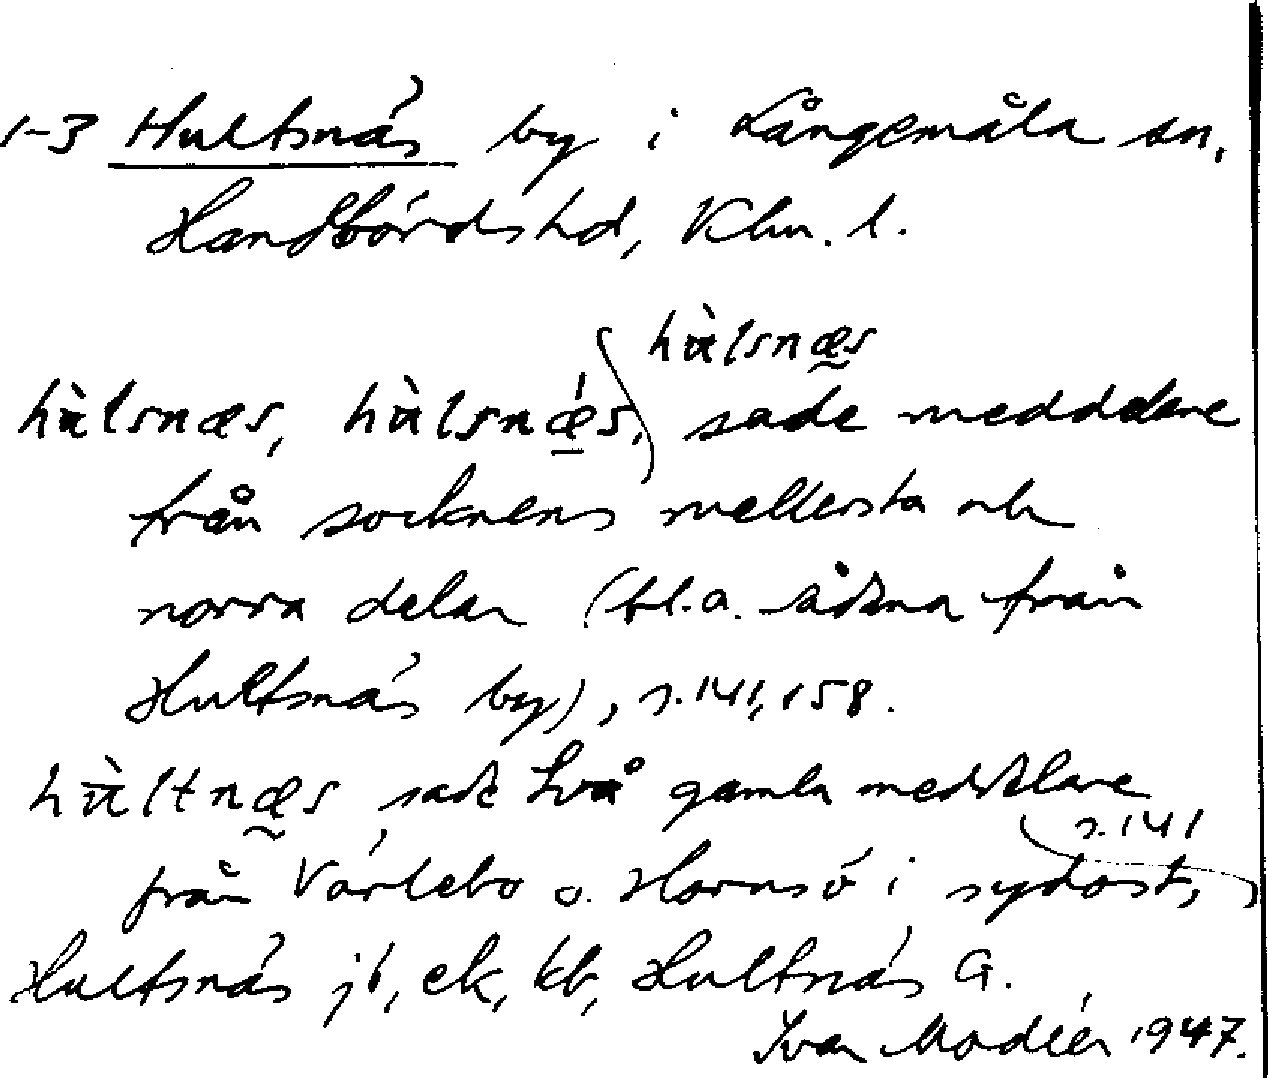 1-3 Hultsnäs by i Långemåla sn,
Handbörds hd, Klm. l.
hùlsnæs
hùlsnæs, hùlsnǽs, sade meddelare
från socknens mellersta och
norra delar (bl.a. sådana från
Hultsnäs by), s. 141, 158.
hùltnæs sade två gamla meddelare
s. 141
från Värlebo o. Hornsö i sydost,
Hultsnäs jb, ek, kb, Hultnäs G.
Ivar Modéer 1947.